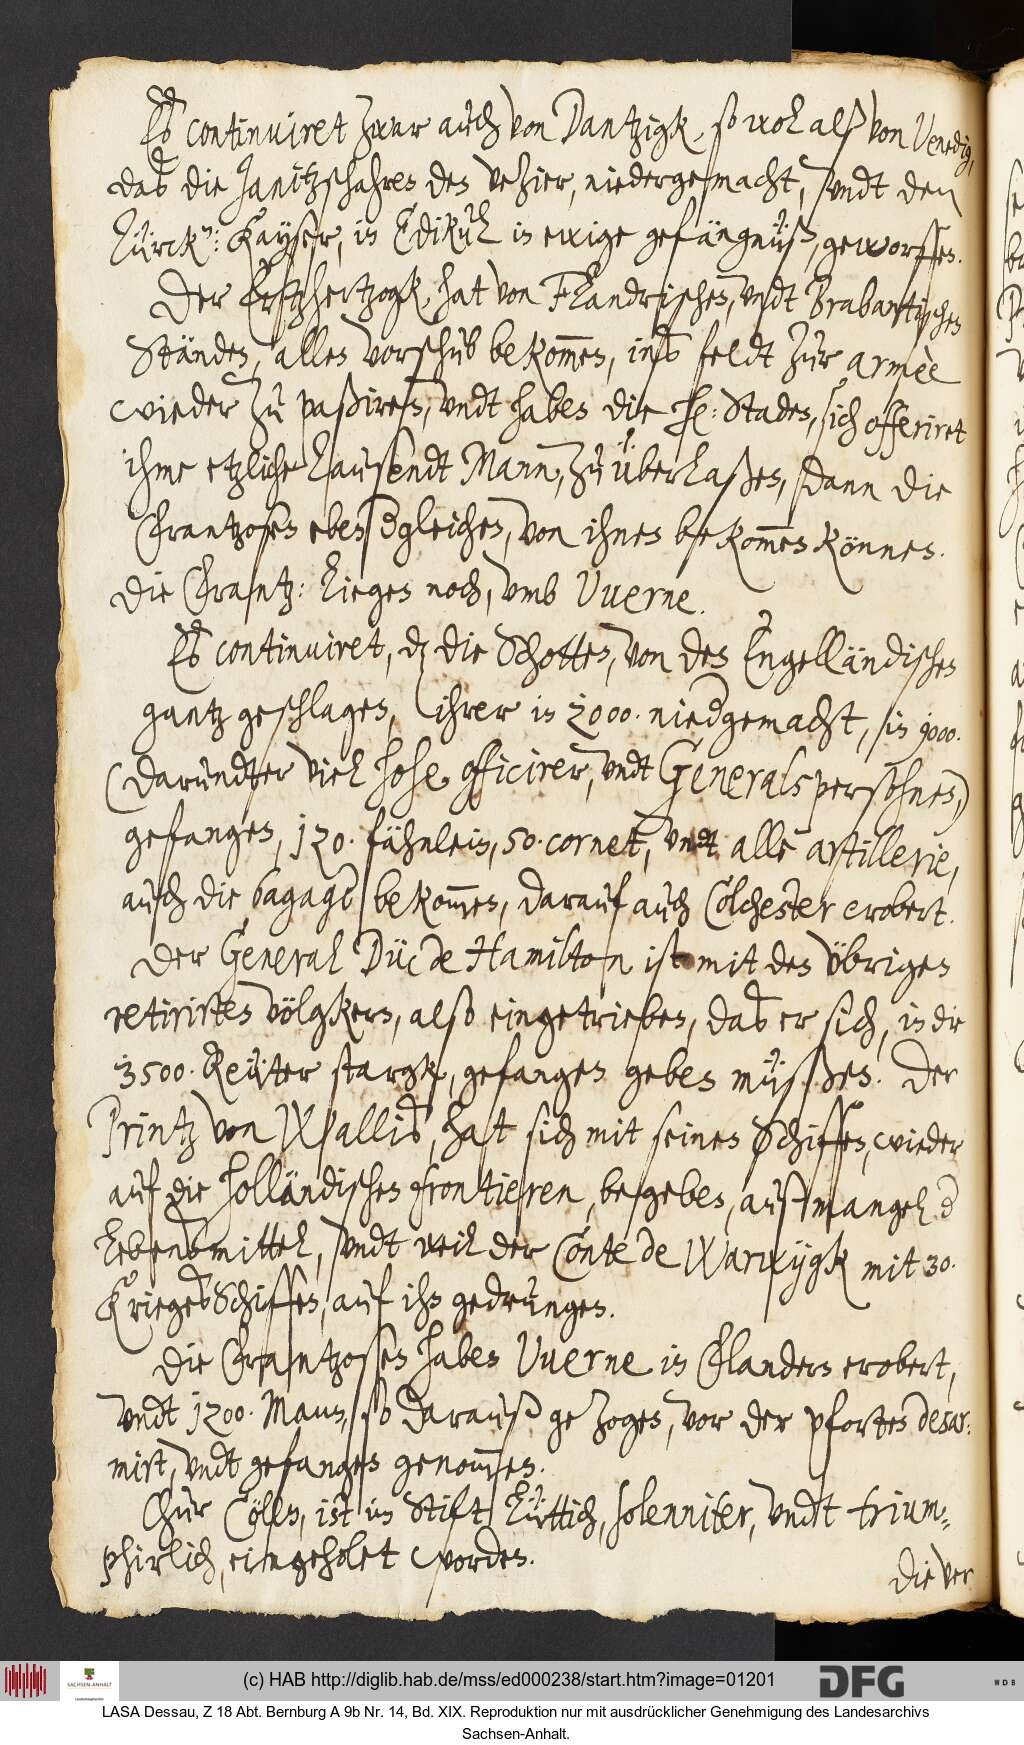 Eß continuiret zwar auch von Dantzigk, so wol alß von Venedig,
daß die Janitzscharen den Vezier, niedergemacht, undt den
Türck: Kayser, in Edikul in ewige gefängnüß, geworffen.
Der Ertzhertzogk, hat von Flandrischen, undt Brabantischen
Ständen, alles vorschub bekom̅en, inß feldt zur armèe
wieder zu paßiren, undt haben die H: Staden, sich offeriret
ihme etzliche Tausendt Mann, zu überlaßen, dann die
Frantzosen eben dgleichen, von ihnen bekom̅en können.
Die Frantz: liegen noch, umb Vuerne.
Eß continuiret, dz die Schotten, von den Engelländischen
gantz geschlagen, ihrer in 2000. niedgemacht, in 9000.
(darundter viel hohe officirer, undt Generalspersohnen,)
gefangen, 120. fähnlein, 50. cornet, undt alle artillerie,
auch die bagage bekom̅en, darauf auch Colchester erobert.
Der General Düc de Hamilton ist mit den übrigen
retirirten völgkern, also eingetrieben, daß er sich, in die
3500. Reütter stargk, gefangen geben müßen. Der
Printz von Walliß, hat sich mit seinen Schiffen, wieder
auf die Holländischen frontieren, begeben, auß mangel d
Lebensmittel, undt weil der Conte de Warwygk mit 30.
KriegesSchiffen, auf ihn gedrungen.
Die Frantzosen haben Vuerne in Flandern erobert,
undt 1200. Mann, so darauß gezogen, vor der pforten desar:
mirt, undt gefangen genom̅en.
Chur Cölln, ist in Stift Lüttich, solenniter, undt trium-
phirlich, eingeholet worden.
Die ver
(c) HAB http://diglib.hab.de/mss/ed000238/start.htm?image=01201
SACHSEN-ANHALT
DFG
WDB
LASA Dessau, Z 18 Abt. Bernburg A 9b Nr. 14, Bd. XIX. Reproduktion nur mit ausdrücklicher Genehmigung des Landesarchivs
Sachsen-Anhalt.